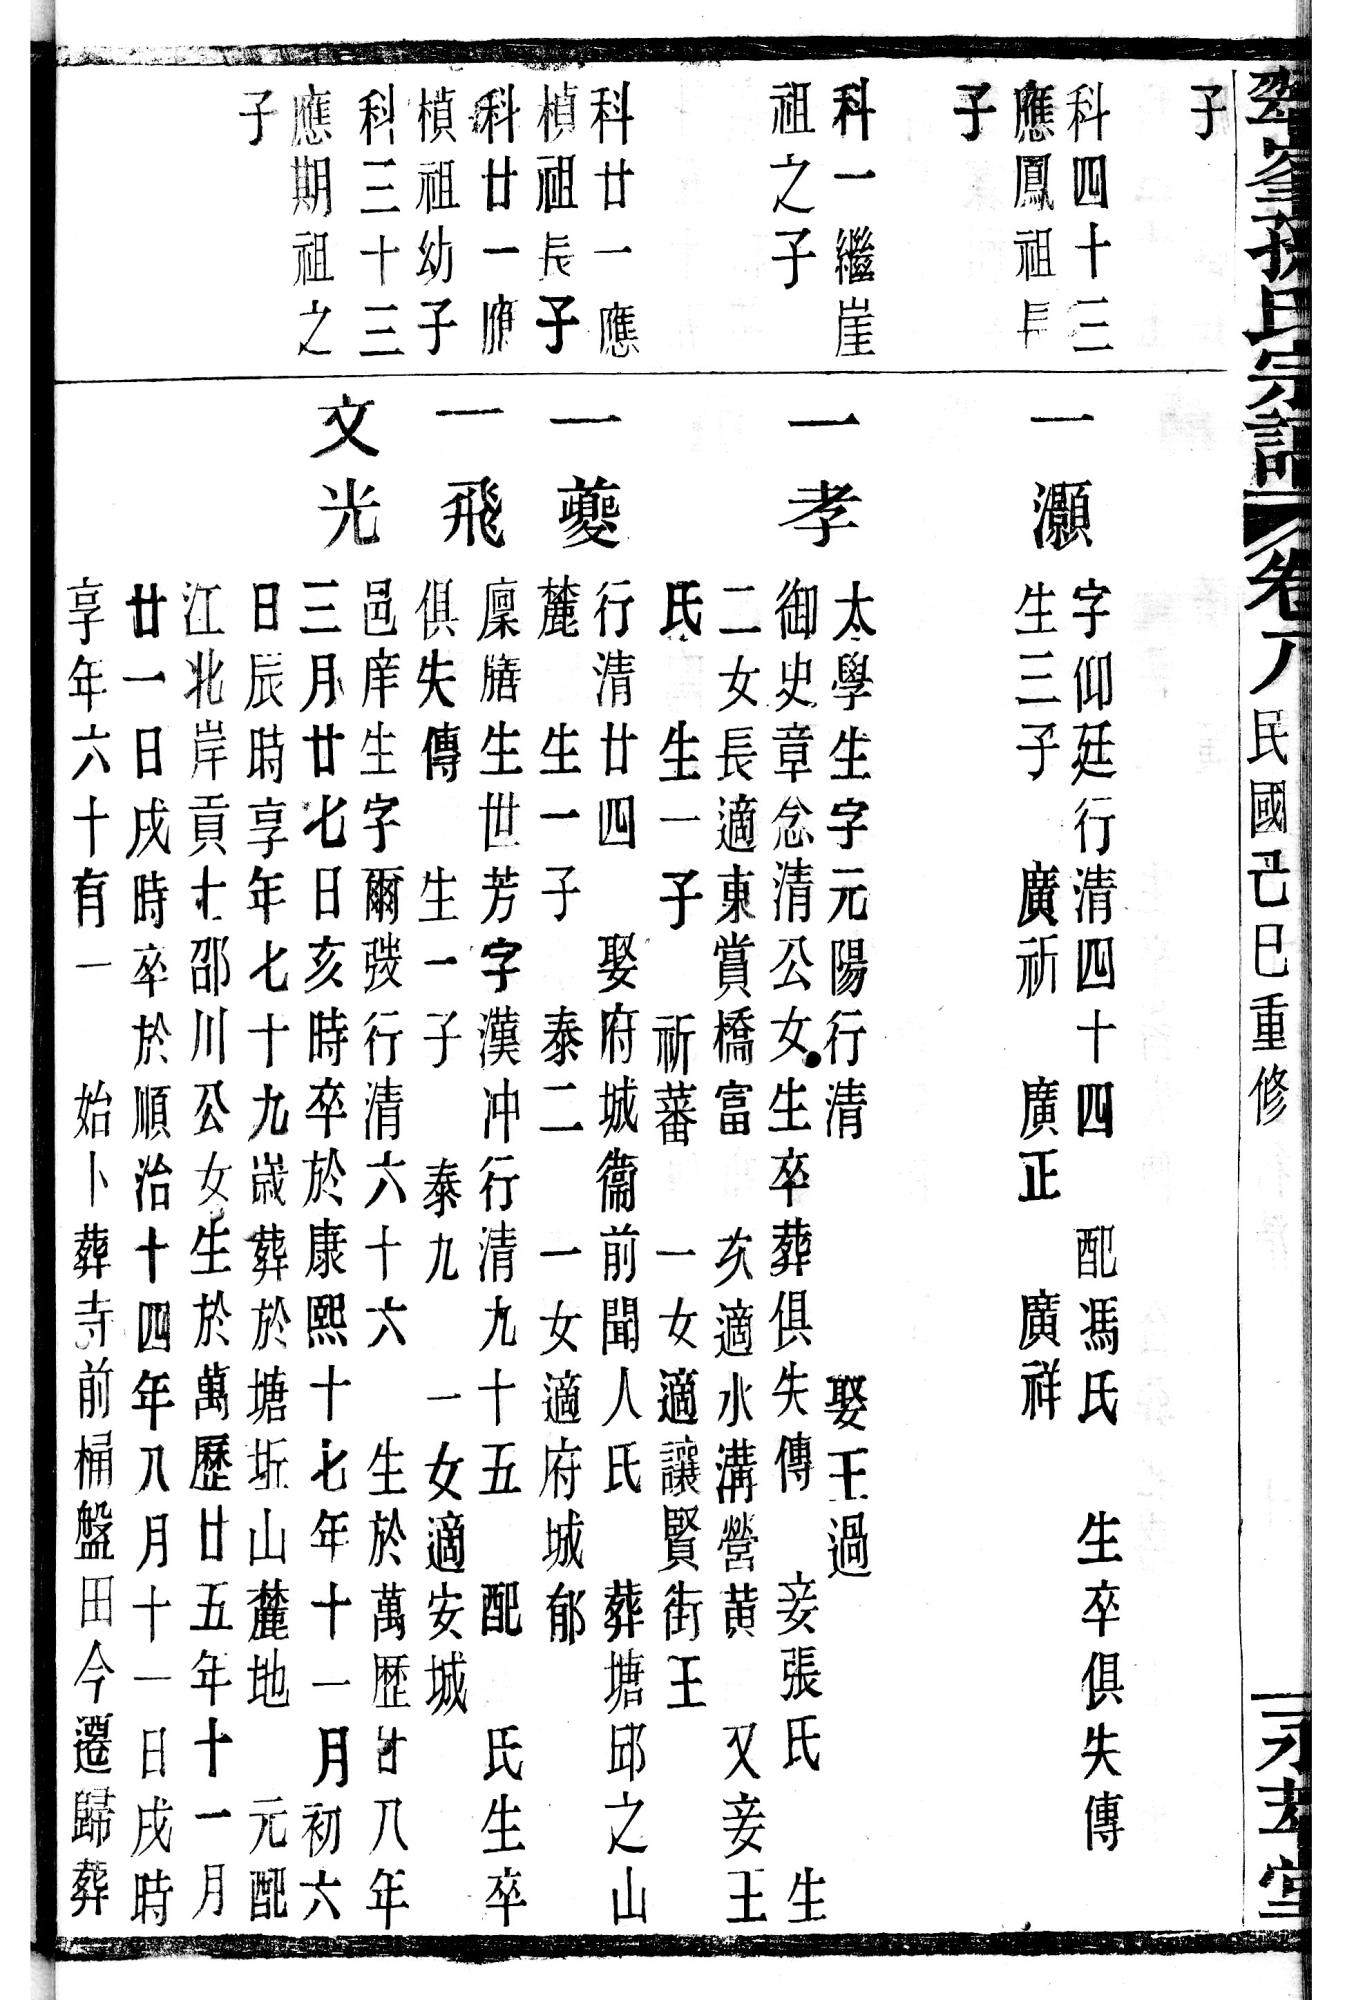 翠峯孫氏宗譜 卷八 民國己巳重修 永芳堂
子
科四十三
應鳳祖長
子
科一繼崖
祖之子
科廿一應
楨祖長子
科廿一應
楨祖幼子
科三十三
應期祖之
子
一灝
字仰廷行清四十四 配馮氏 生卒俱失傳
生三子 廣祈 廣正 廣祥
一孝
太學生字元陽行清 娶王過
御史章忿清公女生卒葬俱失傳 妾張氏 生
二女長適東賞橋富 次適水溝營黄 又妾王
氏 生一子 祈蕃 一女適讓賢街王
一夔
行清廿四 娶府城衞前聞人氏 葬塘邱之山
麓 生一子 泰二 一女適府城郁
一飛
廩膳生世芳字漢冲行清九十五 配 氏生卒
俱失傳 生一子 泰九 一女適安城
文光
邑庠生字爾弢行清六十六 生於萬歷廿八年
三月廿七日亥時卒於康熙十七年十一月初六
日辰時享年七十九歲葬於塘坵山麓地 元配
江北岸貢士邵川公女生於萬歷廿五年十一月
廿一日戌時卒於順治十四年八月十一日戌時
享年六十有一 始卜葬寺前桶盤田今遷歸葬